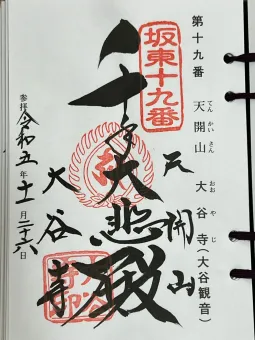 第十九番 天開山 大谷寺(大谷観音)
てん かい さん おお や じ
坂東十九番
天開山
千手大悲殿
大谷寺
参拝 令和五年十一月二十六日